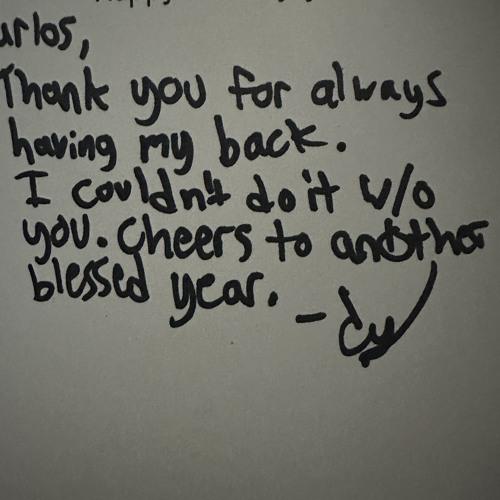 arlos,
Thank you for always
having my back.
I couldn't do it w/o
you. Cheers to another
blessed year.
- Cy